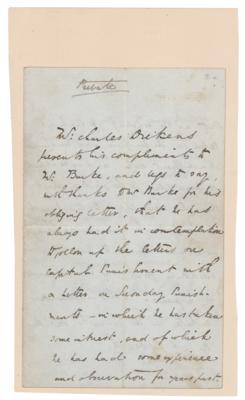 Private
Mr. Charles Dickens
presents his compliments to
Mr. Burke, and begs to say,
with thanks to Mr. Burke for his
obliging letter, that he has
always had it in contemplation
to follow up the letters on
Capital Punishment with
a letter on Secondary Punish-
ments – in which he has taken
some interest, and of which
he has had some experience
and observation for years past.